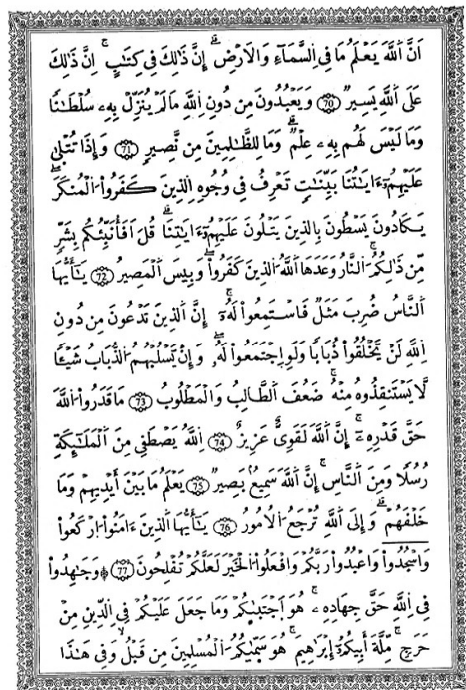 اَنَّ اَ۬للَّهَ يَعْلَمُ مَا فِے اِ۬لسَّمَآءِ وَالَارْضِۖ إِنَّ ذَٰلِكَ فِے كِتَٰبٍۚ اِنَّ ذَٰلِكَ
عَلَى اَ۬للَّهِ يَسِيرٞۖ 70 وَيَعْبُدُونَ مِن دُونِ اِ۬للَّهِ مَا لَمْ يُنَزِّلْ بِهِۦ سُلْطَٰناٗ
وَمَا لَيْسَ لَهُم بِهِۦ عِلْمٞۖ وَمَا لِلظَّٰلِمِينَ مِن نَّصِيرٖۖ 71 وَإِذَا تُتْلَىٰ
عَلَيْهِمُۥٓ ءَايَٰتُنَا بَيِّنَٰتٖ تَعْرِفُ فِے وُجُوهِ اِ۬لذِينَ كَفَرُواْ اُ۬لْمُنكَرَۖ
يَكَادُونَ يَسْطُونَ بِالذِينَ يَتْلُونَ عَلَيْهِمُۥٓ ءَايَٰتِنَاۖ قُلَ اَفَأُنَبِّئُكُم بِشَرّٖ
مِّن ذَٰلِكُمُۚ اُ۬لنَّارُ وَعَدَهَا اَ۬للَّهُ اُ۬لذِينَ كَفَرُواْۖ وَبِيسَ اَ۬لْمَصِيرُۖ 72 يَٰٓأَيُّهَا
اَ۬لنَّاسُ ضُرِبَ مَثَلٞ فَاسْتَمِعُواْ لَهُۥٓۚ إِنَّ اَ۬لذِينَ تَدْعُونَ مِن دُونِ
اِ۬للَّهِ لَنْ يَّخْلُقُواْ ذُبَاباٗ وَلَوِ اِ۪جْتَمَعُواْ لَهُۥۖ وَإِنْ يَّسْلُبْهُمُ اُ۬لذُّبَابُ شَيْـٔاٗ
لَّا يَسْتَنقِذُوهُ مِنْهُۚ ضَعُفَ اَ۬لطَّالِبُ وَالْمَطْلُوبُۖ 73 مَا قَدَرُواْ اُ۬للَّهَ
حَقَّ قَدْرِهِۦٓۚ إِنَّ اَ۬للَّهَ لَقَوِيٌّ عَزِيزٌۖ 74 اِ۬للَّهُ يَصْطَفِے مِنَ اَ۬لْمَلَٰٓئِكَةِ
رُسُلاٗ وَمِنَ اَ۬لنَّاسِۚ إِنَّ اَ۬للَّهَ سَمِيعُۢ بَصِيرٞۖ 75 يَعْلَمُ مَا بَيْنَ أَيْدِيهِمْ وَمَا
خَلْفَهُمْۖ وَإِلَى اَ۬للَّهِ تُرْجَعُ اُ۬لُامُورُۖ 76 يَٰٓأَيُّهَا اَ۬لذِينَ ءَامَنُواْ اُ۪رْكَعُواْ
وَاسْجُدُواْ وَاعْبُدُواْ رَبَّكُمْ وَافْعَلُواْ اُ۬لْخَيْرَ لَعَلَّكُمْ تُفْلِحُونَۖ 77 ۞ وَجَٰهِدُواْ
فِے اِ۬للَّهِ حَقَّ جِهَادِهِۦۚ هُوَ اَ۪جْتَبَىٰكُمْ وَمَا جَعَلَ عَلَيْكُمْ فِے اِ۬لدِّينِ مِنْ
حَرَجٖۚ مِّلَّةَ أَبِيكُمُۥٓ إِبْرَٰهِيمَۚ هُوَ سَمَّىٰكُمُ اُ۬لْمُسْلِمِينَ مِن قَبْلُ وَفِے هَٰذَا